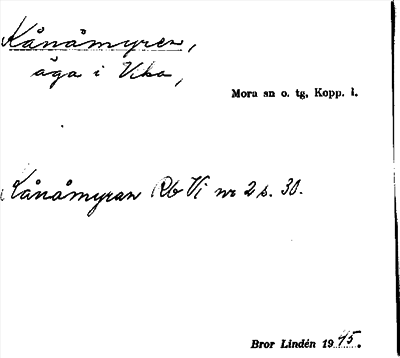 Kånåmyren,
äga i Vika,
Mora sn o. tg, Kopp. l.
Kånåmyran Rb Vi nr 2 s. 30.
Bror Lindén 1945.